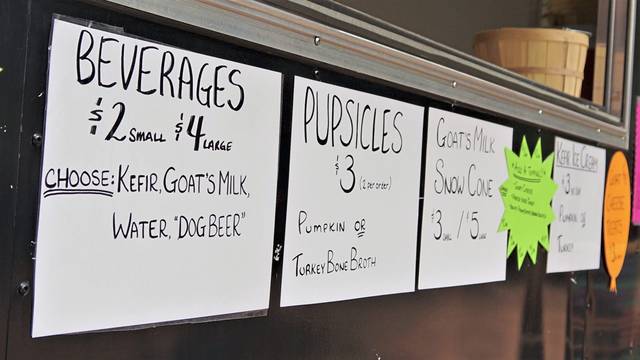 BEVERAGES
$2 SMALL $4 LARGE
CHOOSE: KEFIR, GOAT'S MILK,
WATER, "DOG BEER"
PUPSICLES
$3 (2 per order)
PUMPKIN OR
TURKEY BONE BROTH
GOAT'S MILK
SNOW CONE
$3 SMALL / $5 LARGE
ADD A TOPPING!
KEFIR ICE CREAM
$3
PUMPKIN OR
TURKEY
CHEESE